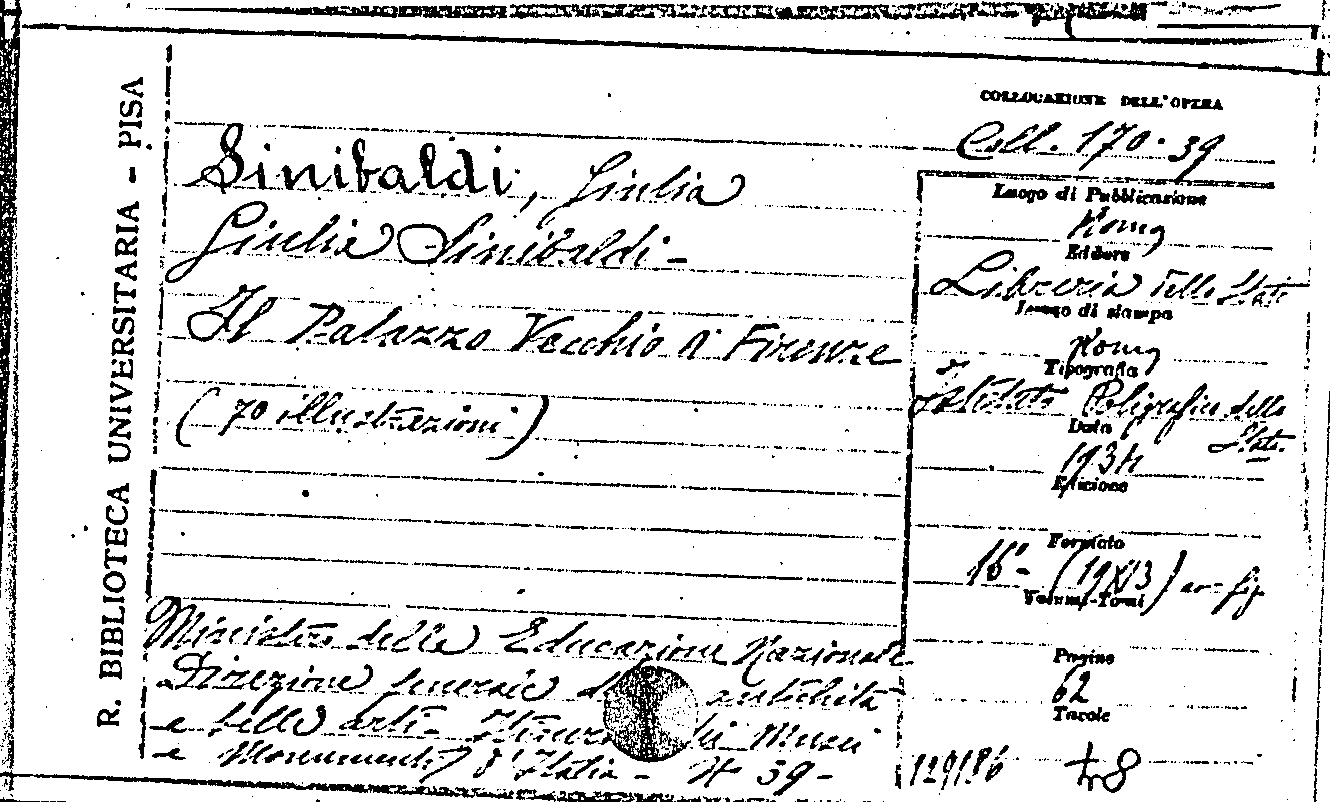 R. BIBLIOTECA UNIVERSITARIA - PISA
COLLOCAZIONE DELL'OPERA
Coll. 170.39
Sinibaldi, Giulia
Giulia Sinibaldi -
Il Palazzo Vecchio di Firenze
(70 illustrazioni)
Ministero della Educazione Nazionale
Direzione generale antichità
e belle arti - dei Musei
e Monumenti d'Italia - N 39 -
Luogo di Pubblicazione
Roma
Editore
Libreria dello Stato
Luogo di stampa
Roma
Tipografia
Istituto Poligrafico dello
Stato
Data
1934
Edizione
Formato
16° - (19x13) con fig
Volumi-Tomi
Pagine
62
Tavole
129186